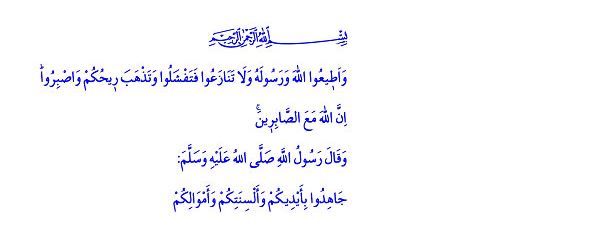 بِسْمِ اللهِ الرَّحْمٰنِ الرَّحِيمِ
وَاَطٖيعُوا اللّٰهَ وَرَسُولَهُ وَلَا تَنَازَعُوا فَتَفْشَلُوا وَتَذْهَبَ رٖيحُكُمْ وَاصْبِرُواۜ
اِنَّ اللّٰهَ مَعَ الصَّابِرٖينَۚ
وَقَالَ رَسُولُ اللَّهِ صَلَّى اللهُ عَلَيْهِ وَسَلَّمَ:
جَاهِدُوا بِأَيْدِيكُمْ وَأَلْسِنَتِكُمْ وَأَمْوَالِكُمْ